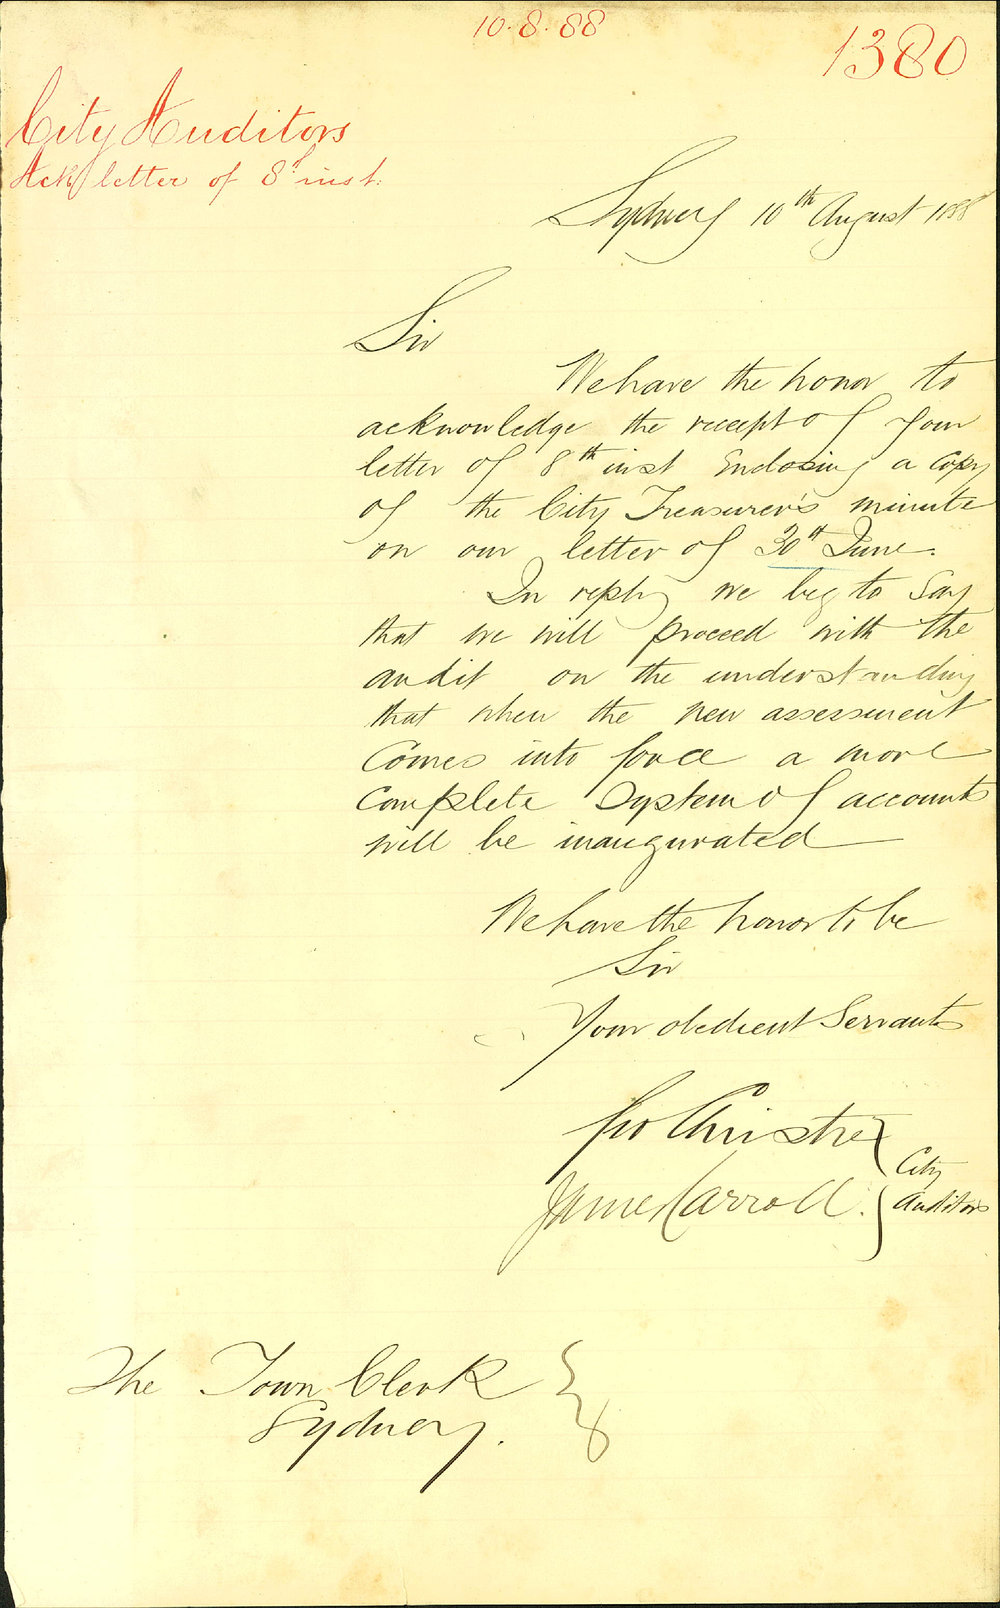 10.8.88
1380
City Auditors
Ack letter of 8th inst.
Sydney 10th August 1888
Sir
We have the honor to
acknowledge the receipt of your
letter of 8th inst Enclosing a copy
of the City Treasurer's minute
on our letter of 30th June.
In reply we beg to say
that we will proceed with the
audit on the understanding
that when the new assessment
Comes into force a more
Complete System of accounts
will be inaugurated
We have the honor to be
Sir
Your obedient Servants
Geo Christie
James Carroll.
City
Auditors
The Town Clerk
Sydney.